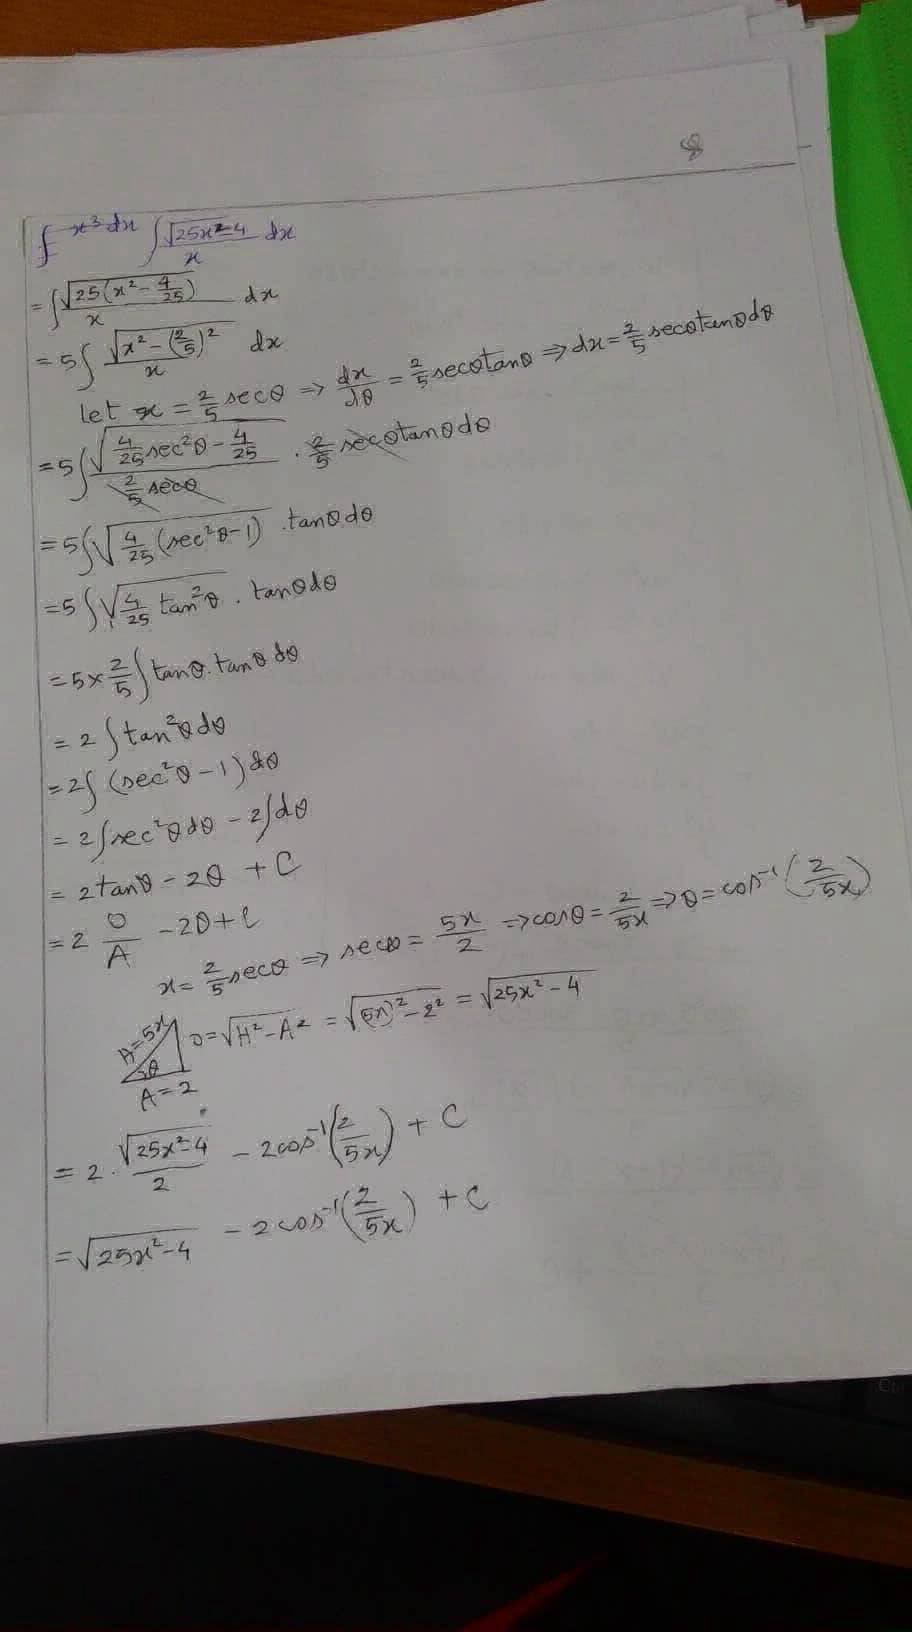 8
∫ x³ dx ∫ √(25x²-4)/x dx
= ∫ √(25(x² - 4/25))/x dx
= 5 ∫ √(x² - (2/5)²)/x dx
let x = 2/5 secθ ⇒ dx/dθ = 2/5 secθtanθ ⇒ dx = 2/5 secθtanθdθ
= 5 ∫ √(4/25 sec²θ - 4/25)/(2/5 secθ) · 2/5 secθtanθdθ
= 5 ∫ √(4/25 (sec²θ-1)) · tanθdθ
= 5 ∫ √(4/25 tan²θ) · tanθdθ
= 5 × 2/5 ∫ tanθ.tanθ dθ
= 2 ∫ tan²θdθ
= 2 ∫ (sec²θ - 1) dθ
= 2 ∫ sec²θdθ - 2∫dθ
= 2tanθ - 2θ + C
= 2 O/A - 2θ + C
x = 2/5 secθ ⇒ secθ = 5x/2 ⇒ cosθ = 2/5x ⇒ θ = cos⁻¹(2/5x)
H=5x θ A=2 O = √(H²-A²) = √((5x)²-2²) = √(25x²-4)
= 2 · √(25x²-4)/2 - 2cos⁻¹(2/5x) + C
= √(25x²-4) - 2cos⁻¹(2/5x) + C